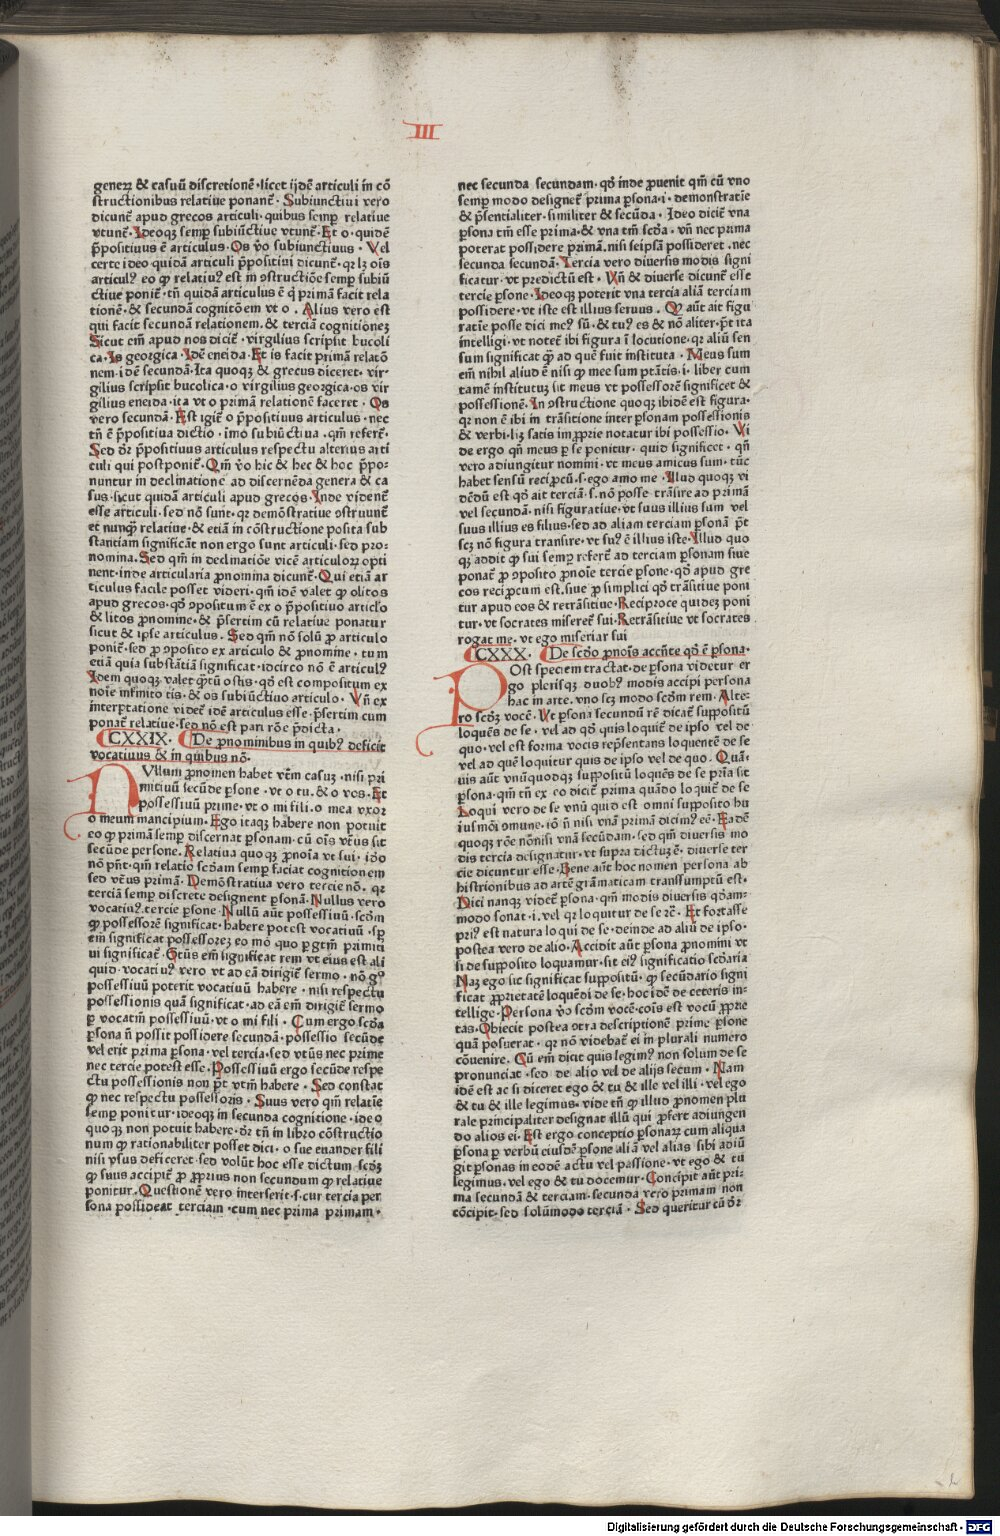 III
generꝝ & casuū discretionē·licet ijdē articuli in cō
structionibus relatiue ponanť· Subiunctiui vero
dicunť apud grecos articuli·quibus semꝑ relatiue
vtunť·Ideoqꝫ semꝑ subiūctiue vtunť·Et o·quidē
p̄positiuus ē articulus·Os v̊o subiunctiuus · Vel
certe ideo quidā articuli p̄positini dicunť·qꝛ lꝫ oīs
articulꝰ eo ꝙ relatiuꝰ est in ꝯstructiōe semꝑ subiū
ctiue poniť·tn̄ quidā articulus ē q̇ primā facit rela
tionē·& secundā cognitōem vt o . Alius vero est
qui facit secundā relationem·& terciā cognitionez
Sicut em̄ apud nos diciť · virgilius scripsit bucoli
ca·Is georgica·Idē eneida·Et is facit primā relatō
nem·idē secundā·Ita quoqꝫ & grecus diceret· vir-
gilius scripsit bucolica·o virgilius georgica·os vir
gilius eneida·ita vt o primā relationē faceret · Os
vero secundā·Est igiť o p̄positiuus articulus·nec
tn̄ ē p̄positiua dictio · īmo subiūctiua ·qm̄ referť·
Sed dr̄ p̄positiuus articulus respectu alterius arti
culi qui postponiť·Qm̄ v̊o hic & hec & hoc p̄po-
nuntur in declinatione ad discernēda genera & ca
sus·sicut quidā articuli apud grecos·Inde videnť
esse articuli·sed nō sunt·qꝛ demōstratiue ꝯstruunť
et nunꝙ̄ relatiue·& etiā in cōstructione posita sub
stantiam significāt non ergo sunt articuli·sed pro-
nomina·Sed qm̄ in declinatiōe vicē articuloꝝ opti
nent·inde articularia ꝓnomina dicunť·Qui etiā ar
ticulus facile posset videri·qm̄ idē valet ꝙ olitos
apud grecos·qd̓ ꝯpositum ē ex o p̄positiuo articlo
& litos ꝓnomine·& p̄sertim cū relatiue ponatur
sicut & ipse articulus . Sed qm̄ nō solū ꝓ articulo
poniť·sed ꝓ ꝯposito ex articulo & ꝓnomine·tum
etiā quia substātiā significat·idcirco nō ē articulꝰ
Idem quoqꝫ valet ꝙ̄tū ostis·qd̓ est compositum ex
noīe infinito tis·& os subiūctiuo articulo· Vn̄ ex
interp̄tatione videť idē articulus esse·p̄sertim cum
ponať relatiue·sed nō est pari rōe p̄dicta·
CXXIX· De pronominibus in quibꝰ deficit
vocatiuus & in quibus nō·
NVllum ꝓnomen habet vťm casuꝫ ·nisi pri
mitiuū secūde ꝑsone·vt o tu·& o ves·Et
possessiuū prime·vt o mi fili·o mea vxor
o meum mancipium·Ego itaqꝫ habere non potuit
eo ꝙ primā semꝑ discernat ꝑsonam·cū oīs vťus sit
secūde persone·Relatiua quoqꝫ ꝓnoīa vt sui·iō̊
nō pn̄t·qm̄ relatio scd̓am semꝑ faciat cognitionem
sed vťus primā·Demōstratiua vero tercie nō·qꝛ
terciā semꝑ discrete designent ꝑsonā·Nullus vero
vocatiuꝰ·tercie ꝑsone·Nullū aūt possessiuū·scd̓m
ꝙ possessorē significat·habere potest vocatiuū·sꝑ
em̄ significat possessorez eo mō quo ꝑ gt̄m primiti
ui significať·Gťus em̄ significat rem vt eius est ali
quid·vocatiuꝰ vero vt ad eā dirigiť sermo·nō g̊
possessiuū poterit vocatiuū habere·nisi respectu
possessionis quā significat·ad eā em̄ dirigiť sermo
ꝑ vocatm̄ possessiuū·vt o mi fili · Cum ergo scd̓a
ꝑsona n̄ possit possidere secundā·possessio secūde
vel erit prima ꝑsona·vel tercia·sed vtūs nec prime
nec tercie potest esse·Possessiuū ergo secūde respe
ctu possessionis non pt̄ vtm̄ habere · Sed constat
ꝙ nec respectu possessoris · Suus vero qm̄ relatīe
semꝑ ponitur·ideoqꝫ in secunda cognitione·ideo
quoqꝫ non potuit habere·dr̄ tn̄ in libro cōstructio
num ꝙ rationabiliter posset dici·o sue euander fili
nisi vsus deficeret·sed volūt hoc esse dictum scd̓ꝫ
ꝙ suus accipiť ꝓ ꝓprius non secundum ꝙ relatiue
ponitur·Questionē vero interserit·s·cur tercia per
sona possideat terciam·cum nec prima primam·
nec secunda secundam·qd̓ inde ꝓuenit qm̄ cū vno
semꝑ modo designeť prima ꝑsona·i·demonstratīe
& p̄sentialiter·similiter & secūda · Ideo diciť vna
ꝑsona tm̄ esse prima·& vna tm̄ scd̓a · vn̄ nec prima
poterat possidere primā·nisi seipsā possideret·nec
secunda secundā·Tercia vero diuersis modis signi
ficatur·vt predictū est · Vn̄ & diuerse dicunť esse
tercie ꝑsone·Ideoqꝫ poterit vna tercia aliā terciam
possidere·vt iste est illius seruus . Qd̓ aūt ait figu
ratīe posse dici meꝰ sū·& tuꝰ es & nō aliter·pt̄ ita
intelligi·vt noteť ibi figura ī locutione·qꝛ aliū sen
sum significat ꝙ̄ ad quē fuit instituta · Meus sum
em̄ nihil aliud ē nisi ꝙ mee sum ptātis·i·liber cum
tamē institutuꝫ sit meus vt possessorē significet &
possessionē·In ꝯstructione quoqꝫ ibidē est figura·
qꝛ non ē ibi in trāsitione inter ꝑsonam possessionis
& verbi·lꝫ satis imꝓprie notatur ibi possessio· Vi
de ergo qn̄ meus ꝑ se ponitur· quid significet·qn̄
vero adiungitur nomini·vt meus amicus sum·tūc
habet sensū reciꝓcū·s·ego amo me·Illud quoqꝫ vi
dēdū est qd̓ ait terciā·s·nō posse trāsire ad primā
vel secundā·nisi figuratiue·vt suus illius sum vel
suus illius es filius·sed ad aliam terciam ꝑsonā pt̄
scꝫ nō figura transire·vt suꝰ ē illius iste·Illud quo
qꝫ addit ꝙ sui semꝑ referť ad terciam ꝑsonam siue
ponať ꝓ ꝯposito ꝓnoīe tercie ꝑsone·qd̓ apud gre
cos reciꝓcum est·siue ꝓ simplici qd̓ trāsitiue poni
tur apud eos & retrāsitiue·Reciproce quidez poni
tur·vt socrates misereť sui·Retrāsitiue vt socrates
rogat me·vt ego miseriar sui
CXXX· De scd̓o ꝓnoīs accn̄te qd̓ ē ꝑsona·
POst speciem tractat·de ꝑsona videtur er
go plerisqꝫ duobꝰ modis accipi persona
hac in arte·vno scꝫ modo scd̓m rem·Alte-
ro scd̓ꝫ vocē·Vt ꝑsona secundū rē dicať suppositū
loquēs de se · vel ad qd̓ quis loquiť de ipso vel de
quo·vel est forma vocis rep̄sentans loquentē de se
vel ad quē loquitur quis de ipso vel de quo·Quā-
uis aūt vnūquodqꝫ suppositū loquēs de se pria sit
ꝑsona·qm̄ tn̄ ex eo diciť prima quādo loquiť de se
Loqui vero de se vnū quid est omni supposito hu
iusmōi ꝯmune·iō n̄ nisi vnā primā dicimꝰ eē·Eadē
quoqꝫ rōe nōnisi vnā secūdam·sed qm̄ diuersis mo
dis tercia designatur·vt supra dictuꝫ ē· diuerse ter
cie dicuntur esse·Bene aūt hoc nomen persona ab
histrionibus ad artē grāmaticam transsumptū est·
Dici nanqꝫ videť ꝑsona·qm̄ modis diuersis qd̓am-
modo sonat·i·vel qꝛ loquitur de se rē· Et fortasse
priꝰ est natura loqui de se·deinde ad aliū de ipso·
postea vero de alio·Accidit aūt ꝑsona ꝓnomini vt
si de supposito loquamur·sit eiꝰ significatio scd̓aria
Naꝫ ego sic significat suppositū·ꝙ secūdario signi
ficat ꝓprietatē loquēdi de se·hoc idē de ceteris in-
tellige·Persona v̊o scd̓m vocē·cōis est vocū ꝓprie
tas·Obiecit postea ꝯtra descriptionē prime ꝑsone
quā posuerat · qꝛ nō videbať ei in plurali numero
cōuenire· Cū em̄ dicit quis legimꝰ non solum de se
pronunciat·sed de alio vel de alijs secum · Nam
idē est ac si diceret ego & tu & ille vel illi·vel ego
& tu & ille legimus·vide tn̄ ꝙ illud ꝓnomen plu
rale principaliter designat illū qui ꝓfert adiungen
do alios ei·Est ergo conceptio ꝑsonaꝝ cum aliqua
ꝑsona ꝑ verbū eiusdē ꝑsone aliā vel alias sibi adiū
git ꝑsonas in eodē actu vel passione·vt ego & tu
legimus·vel ego & tu docemur·Concipit aūt pri-
ma secundā & terciam·secunda vero primam non
cōcipit·sed solūmodo terciā · Sed queritur cū dr̄
Digitalisierung gefördert durch die Deutsche Forschungsgemeinschaft - DFG